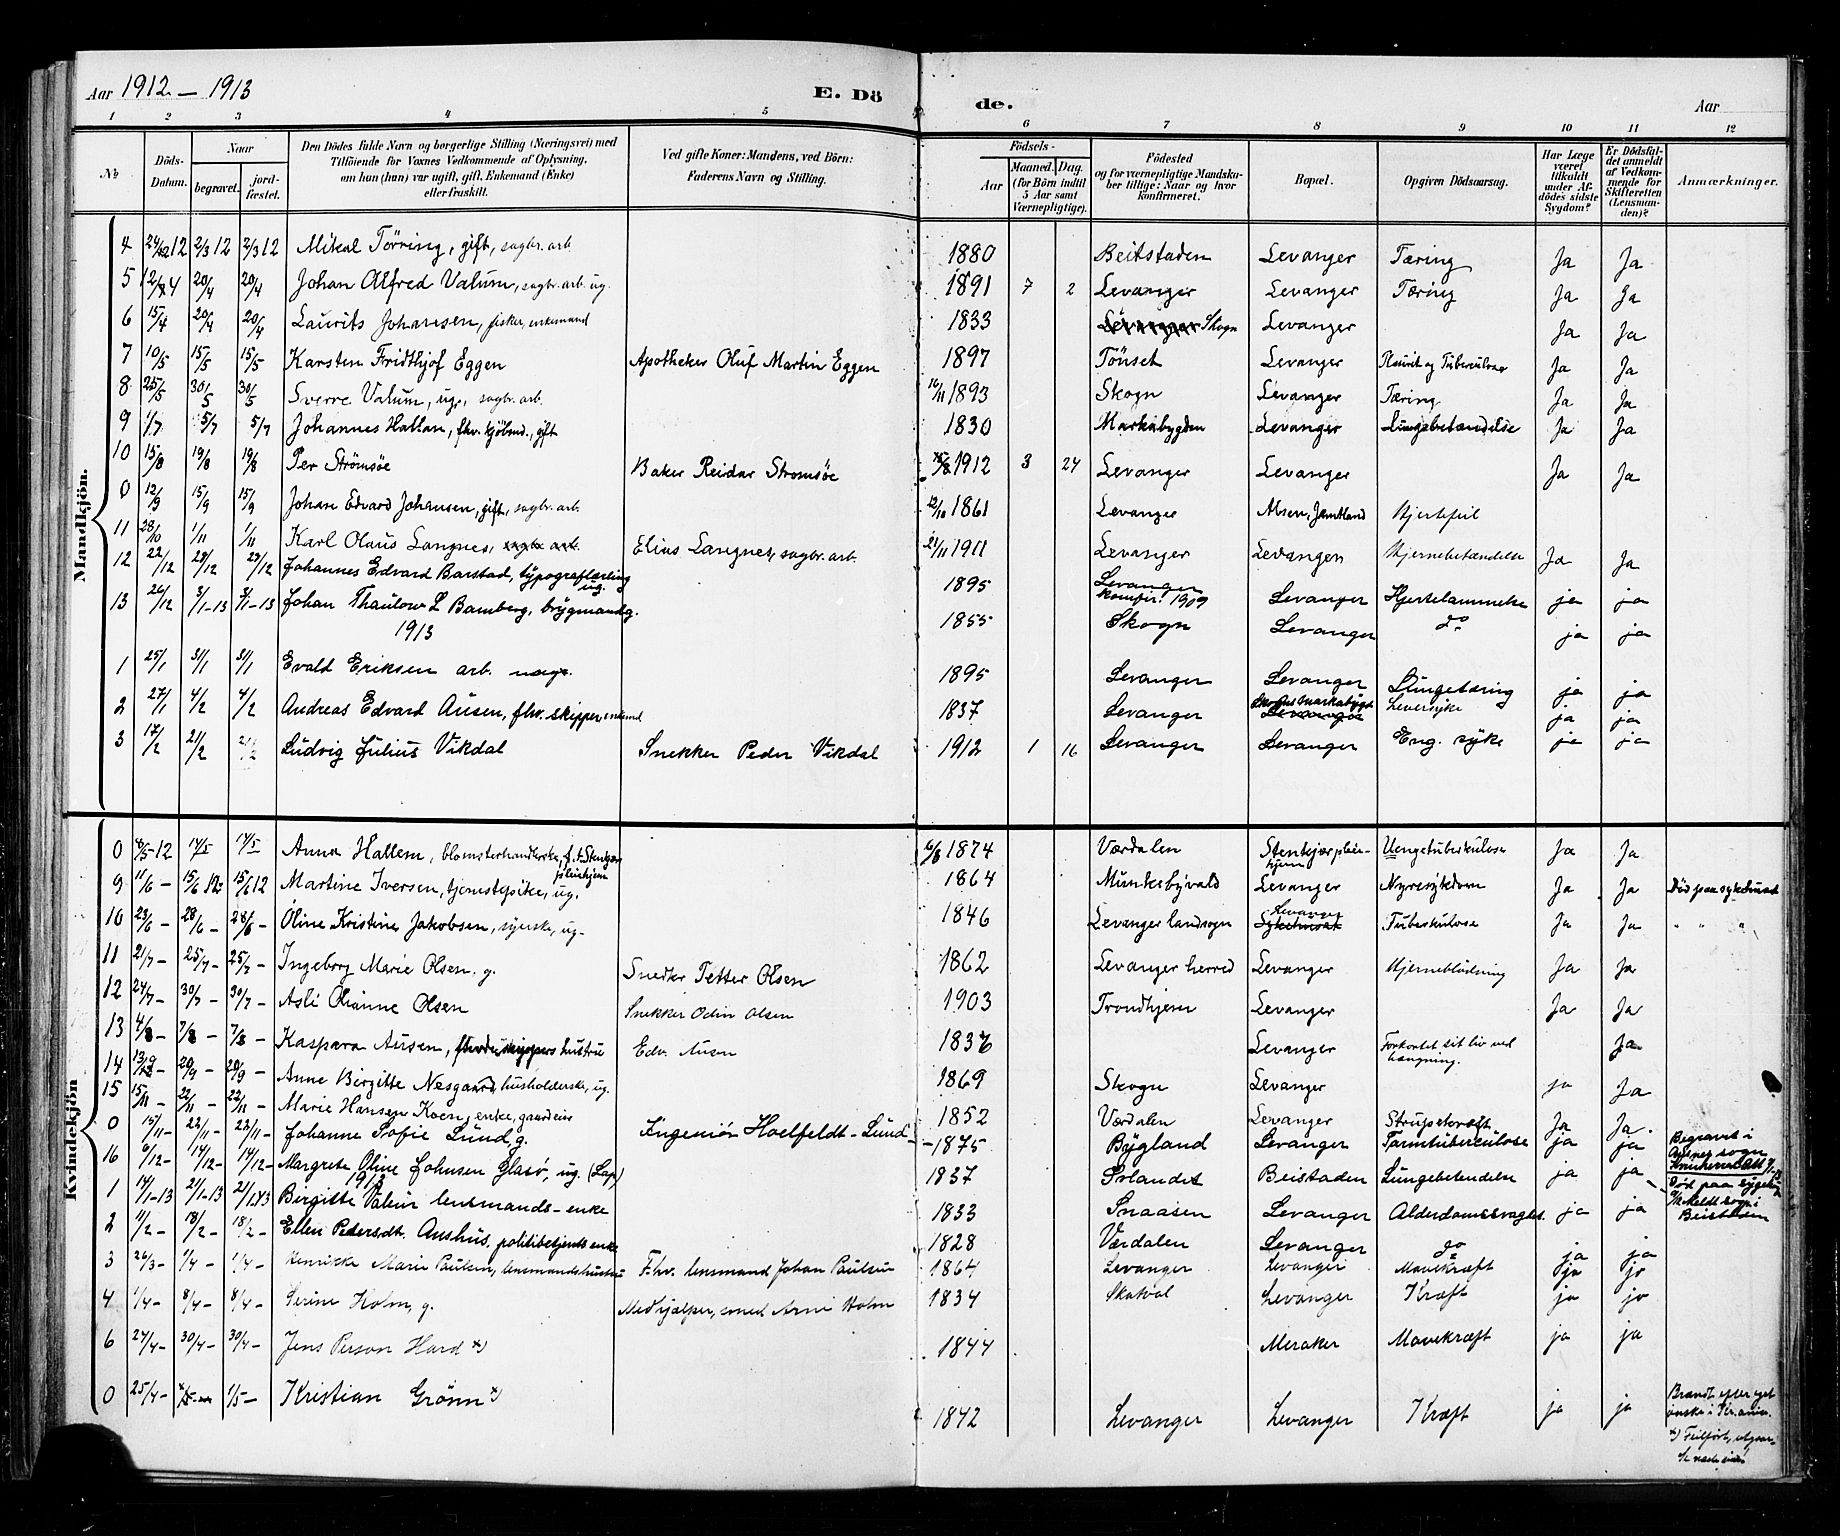 Aar 1912 — 1913 E. Dö de. Aar
1 2 3 4 5 6 7 8 9 10 11 12
No
Döds-Datum.
Naar
begravet. jordfæstet.
Den Dödes fulde Navn og borgerlige Stilling (Næringsvei) med Tilföiende for Voxnes Vedkommende af Oplysning, om han (hun) var ugift, gift, Enkemand (Enke) eller fraskilt.
Ved gifte Koner: Mandens, ved Börn: Faderens Navn og Stilling.
Födsels-
Aar Maaned. Dag. (for Börn indtil 5 Aar samt Værnepligtige).
Födested og for værnepligtige Mandskaber tillige: Naar og hvor konfirmeret.
Bopæl.
Opgiven Dödsaarsag.
Har Læge været tilkaldt under Afdödes sidste Sygdom?
Er Dödsfaldet anmeldt af Vedkommende for Skifteretten (Lensmanden)?
Anmærkninger.
Mandkjön.
4 2/3 12 2/3 12 Mikal Törring, gift, sagbr. arb. 1880 Beitstaden Levanger Tæring Ja Ja
5 20/4 20/4 Johan Alfred Valum, sagbr. arb. ug. 1891 7 2 Levanger Levanger Tæring Ja Ja
6 15/4 20/4 20/4 Laurits Johansen, fisker, enkemand 1833 Levanger Skogn Levanger Ja Ja
7 10/5 15/5 15/5 Karsten Fridthjof Eggen Apotheker Oluf Martin Eggen 1897 Tönset Levanger Pleurit og Tuberculose Ja Ja
8 25/5 30/5 30/5 Sverre Valum, ug., sagbr. arb. 16/11 1893 Skogn Levanger Tæring Ja Ja
9 1/7 5/7 5/7 Johannes Hallan, fhv. kjöbmd., gift 1830 Markabygden Levanger Lungebetændelse Ja Ja
10 15/8 19/8 19/8 Per Strömsöe Baker Reidar Stromsöe 1912 3 24 Levanger Levanger Ja Ja
0 12/9 15/9 15/9 Johan Edvard Johansen, gift, sagbr. arb. 12/10 1861 Levanger Alsen, Jemtland Hjertefeil
11 28/10 1/11 1/11 Karl Olaus Langnes, sagbr. arb. Elias Langnes, sagbr. arb. 21/11 1911 Levanger Levanger Hjernebetændelse Ja Ja
12 22/12 29/12 29/12 Johannes Edvard Barstad, typograflærling ug. 1895 Levanger konfir. 1909 Levanger Hjertelammelse ja ja
13 26/12 3/1-13 3/1-13 Johan Thaulow L Bamberg, brygmand g. 1855 Skogn Levanger do ja ja
1913
1 25/1 31/1 31/1 Evald Eriksen arb. 1895 Levanger Levanger Lungetæring ja ja
2 27/1 4/2 4/2 Andreas Edvard Ausen, fhv. skipper enkmd 1837 Levanger Levanger Leversyke ja ja
3 17/2 21/2 21/2 Ludvig Julius Vikdal Snekker Peder Vikdal 1912 1 16 Levanger Levanger Eng. syke ja ja
Kvindekjön
0 12 14/5 14/5 Anna Hallem, blomsterhandlerske, f. t. Stenkjær pleiehjem 6/8 1874 Værdalen Stenkjær pleiehjem Lungetuberkulose Ja Ja
9 11/6 — 15/6 12 15/6 12 Martine Iversen, tjenestepike, ug. 1864 Munkebyvald Levanger Nyresykdom Ja Ja Död paa sykehuset
10 23/6 — 28/6 — 28/6 — Oline Kristine Jakobsen, syerske, ug. 1846 Levanger landsogn Levanger Sykehuset Tuberkulose Ja Ja " " "
11 21/7 — 25/7 — 25/7 — Ingeborg Marie Olsen. g. Snedker Petter Olsen 1862 Levanger herred Levanger Hjerneblödning Ja Ja
12 24/7 — 30/7 — 30/7 — Asli Olianne Olsen Snekker Odin Olsen 1903 Trondhjem Levanger Ja Ja
13 4/8 — 7/8 — 7/8 — Kaspara Ausen, skippers hustru Edv. Ausen 1836 Levanger Forkortet sit liv ved hængning. Ja
14 20/9 — 20/9 — Anne Birgitte Nesgaard, husholderske, ug. 1869 Skogn Levanger ja Ja
15 15/11 — 22/11 — 22/11 — Marie Hansen Koen, enke, 1852 Værdalen Levanger Ja Ja
0 15/11 — 22/11 — 22/11 — Johanne Sofie Lund, g. Ingeniör Hoelfeldt-Lund 1875 Bygland Levanger Tarmtuberculose ja ja Begravet i sogn
16 9/12 — 14/12 — 14/12 — Margrete Oline Johnsen Glasö, ug. (Lap) 1837 Beistaden Lungebetendelse ja ja Död paa sygehus
1913
1 14/1-13 21/1-13 21/1 13 Birgitte Valeur lensmands-enke 1833 Snaasen Levanger Alderdomssvaghet ja ja
2 11/2 — 18/2 — 18/2 — Ellen Pedersdt. Aushus, politibetjents enke 1828 Værdalen Levanger do ja ja
3 26/3 — 1/4 — 1/4 — Henrikke Marie Paulsen, lensmandshustru F.hv. lensmand Johan Paulsen 1864 Levanger Levanger Mavekræft ja ja
4 1/4 — 8/4 — 8/4 — Serine Holm, g. Medhjælper, smed Arnt Holm 1834 Skatval Levanger Kræft ja ja
6 24/4 — 30/4 — 30/4 — Jens Person Hard x) 1844 Meraker Mavekræft ja ja
0 25/4 — 1/5 — Kristian Grönn x) 1842 Levanger Levanger Kræft ja ja Brændt efter eget önske i Kr.ania.
x) Feilfört, utgaar. se næste side